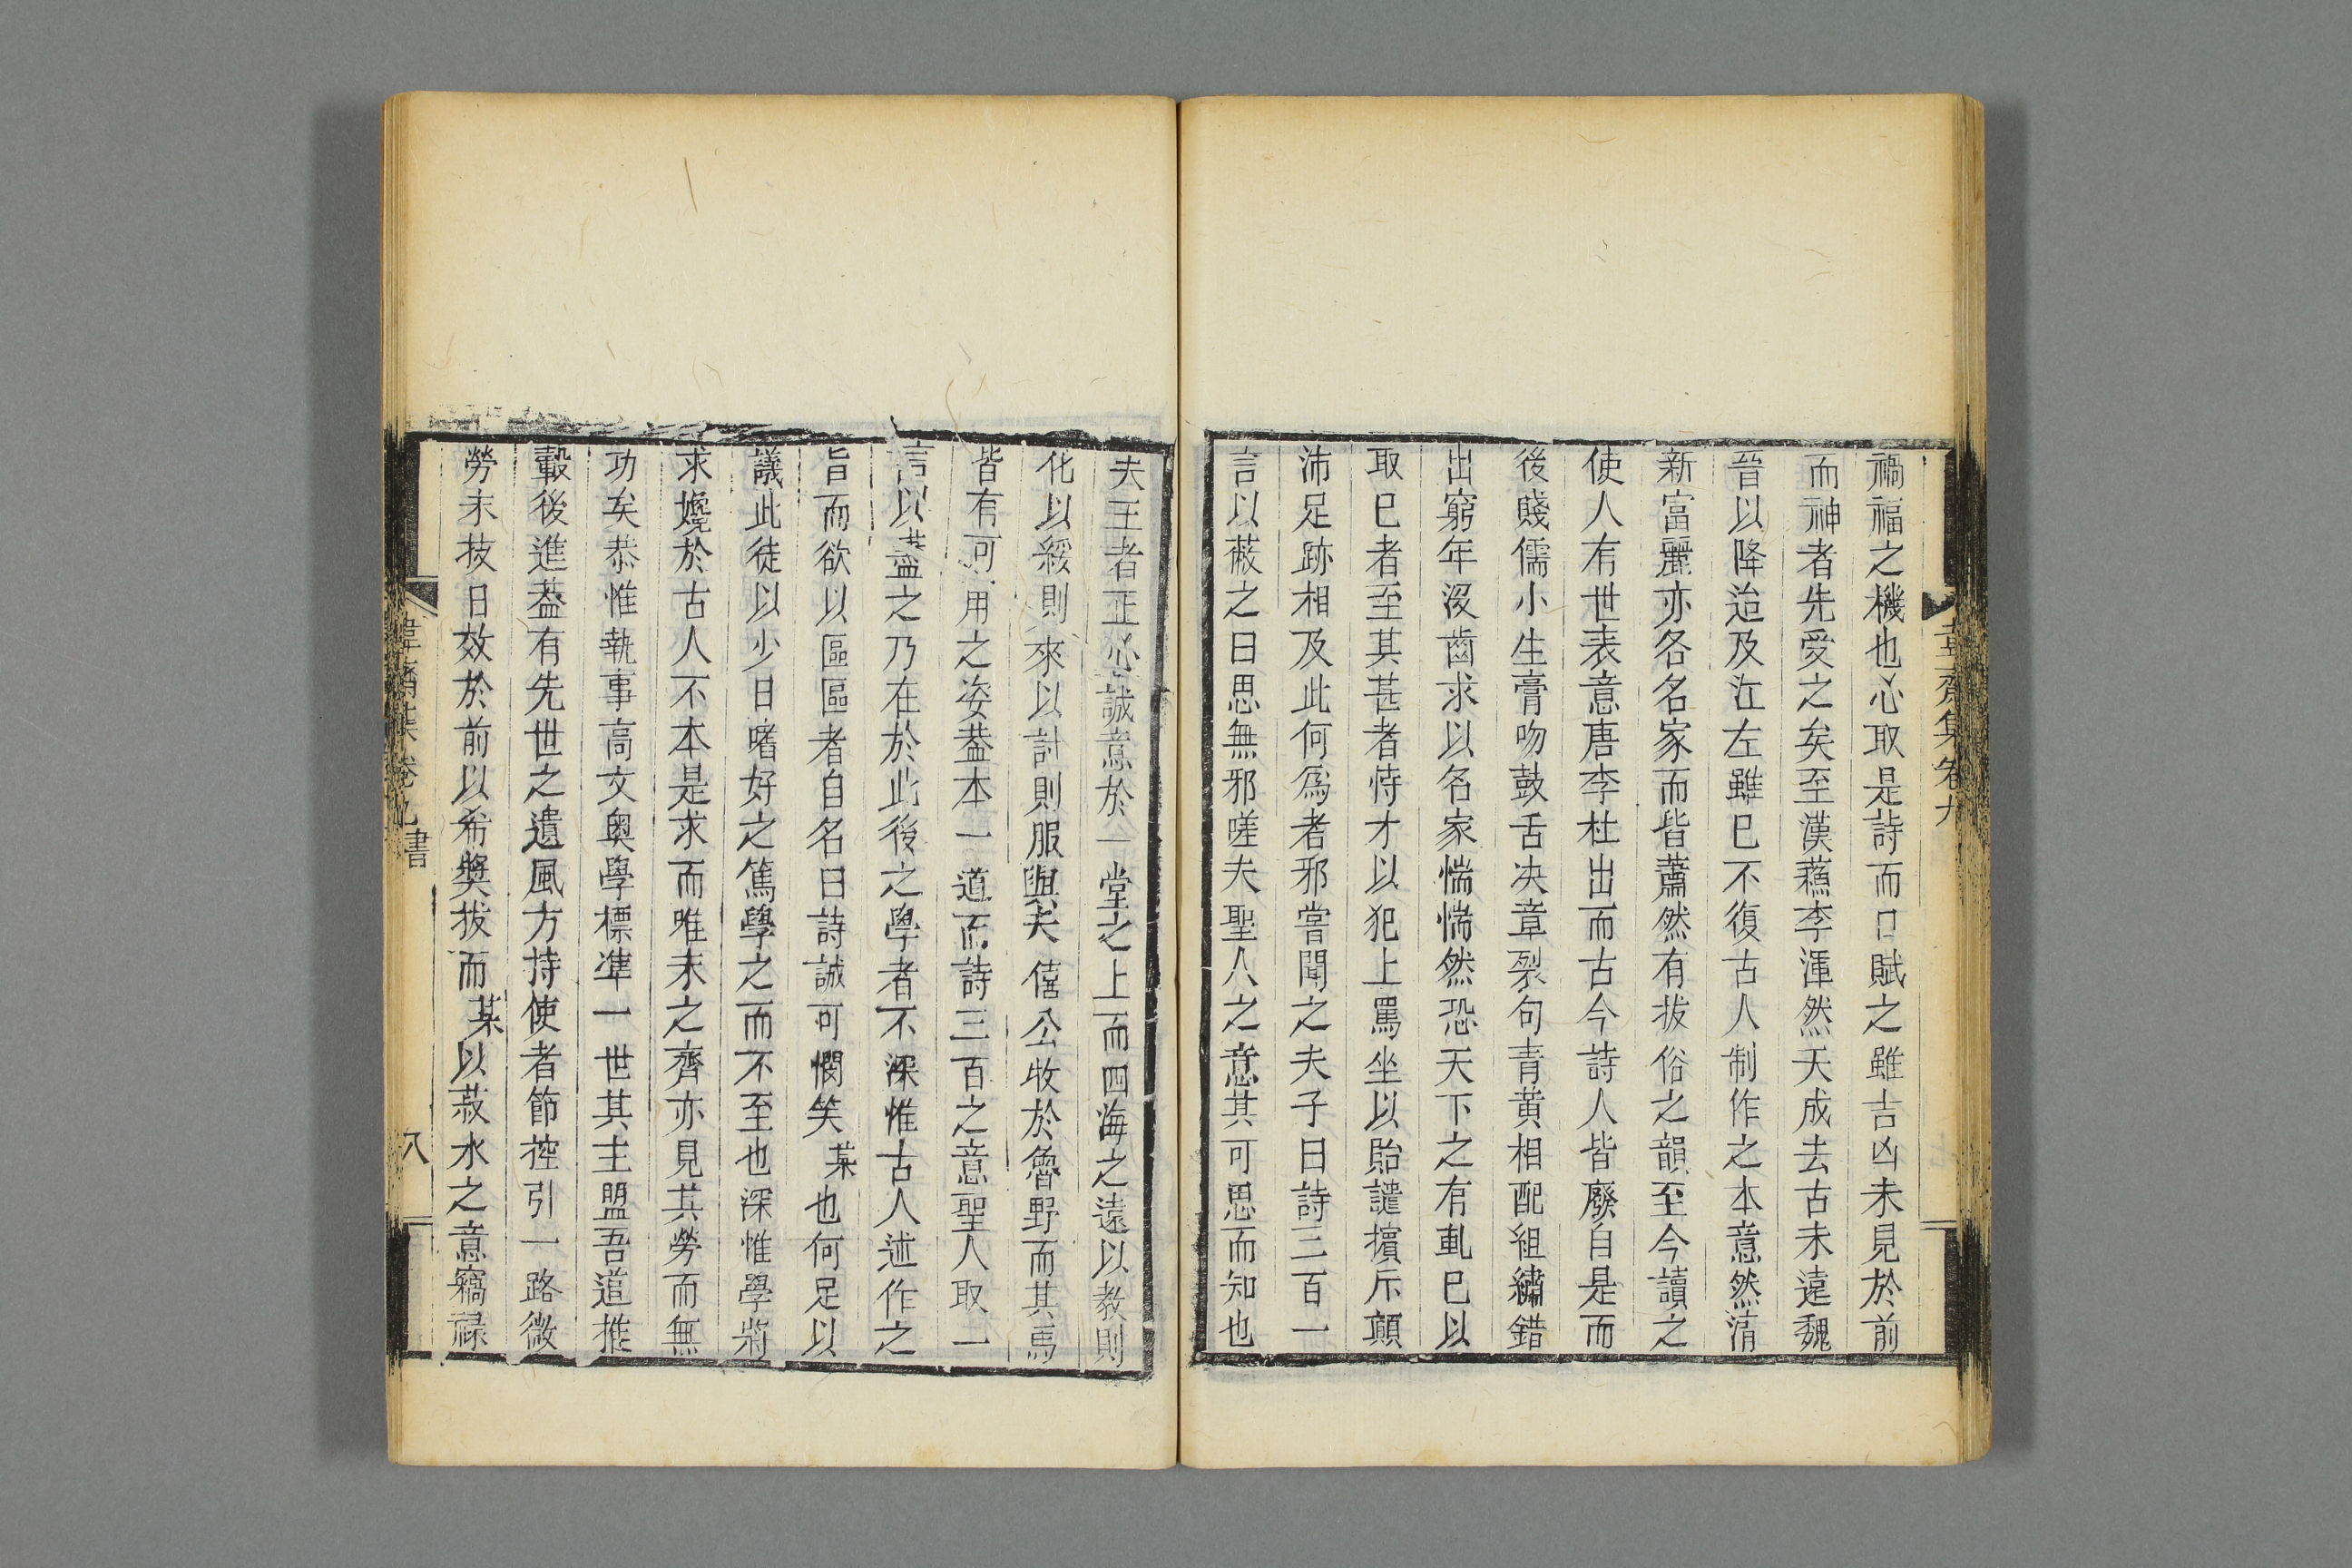 韋齋集卷九
禍福之機也心取是詩而口賦之雖吉凶未見於前
而神者先受之矣至漢蘓李渾然天成去古未遠魏
晉以降迨及江左雖已不復古人制作之本意然清
新富麗亦各名家而皆蕭然有拔俗之韻至今讀之
使人有世表意唐李杜出而古今詩人皆廢自是而
後賤儒小生膏吻鼓舌决章裂句青黄相配組繡錯
出窮年没齒求以名家惴惴然恐天下之有軋已以
取已者至其甚者恃才以犯上罵坐以貽譴擯斥顛
沛足跡相及此何爲者邪嘗聞之夫子曰詩三百一
言以蔽之曰思無邪嗟夫聖人之意其可思而知也
夫王者正心誠意於一堂之上而四海之遠以教則
化以綏則來以討則服與夫僖公牧於魯野而其馬
皆有可用之姿葢本一道而詩三百之意聖人取一
言以葢之乃在於此後之學者不深惟古人述作之
旨而欲以區區者自名曰詩誠可憫笑某也何足以
議此徒以少日嗜好之篤學之而不至也深惟學將
求媿於古人不本是求而唯末之齊亦見其勞而無
功矣恭惟執事高文奥學標凖一世其主盟吾道推
轂後進葢有先世之遺風方持使者節控引一路微
勞末技日效於前以希奬拔而某以菽水之意竊祿
韋齋集卷九書
八